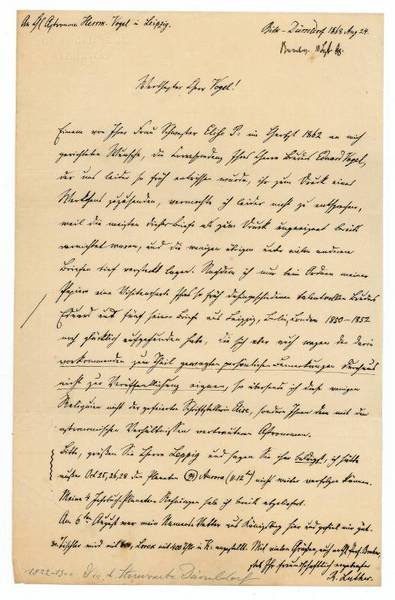 An HE Astronom Herrn. Vogel in Leipzig.
Bilk-Düsseldorf 1868 Aug 24.
Werthester Herr Vogel!
Einem von Ihrer Frau Schwester Elise P. im Herbst 1862 an mich
gerichteten Wunsche, die Correspondenz Ihres Herrn Bruders Eduard Vogel,
der uns leider so früh entrissen wurde, ihr zum Druck eines
Werkchens zuzusenden, vermochte ich leider nicht zu entsprechen,
weil die meisten dieser Briefe als zum Druck ungeeignet bereits
vernichtet waren, und die wenigen übrigen unter vielen anderen
Briefen tief versteckt lagen. Nachdem ich nun beim Ordnen meiner
Papiere eine Visitenkarte Ihres so früh dahingeschiedenen talentvollen Bruders
Eduard und fünf seiner Briefe aus Leipzig, Berlin, London 1850-1852
noch glücklich aufgefunden habe, die sich aber auch wegen der darin
vorkommenden zum Theil gewagten persönlichen Bemerkungen durchaus
nicht zur Veröffentlichung eignen, so übersende ich diese wenigen
Reliquien nicht der gefeierten Schriftstellerin Elise, sondern Ihnen dem mit den
astronomischen Verhältnissen vertrauteren Astronomen.
Bitte, grüßen Sie Herrn Leppig und sagen Sie ihm, ich hätte
außer Oct 25, 26, 28 die Planeten Aurora nicht weiter verfolgen können.
Meine habe ich bereits abgeliefert.
Am 6ten August war mein aus Königsberg hier
Tischler wird mit Mit vielen Grüßen
R. Luther.
Düsseldorf